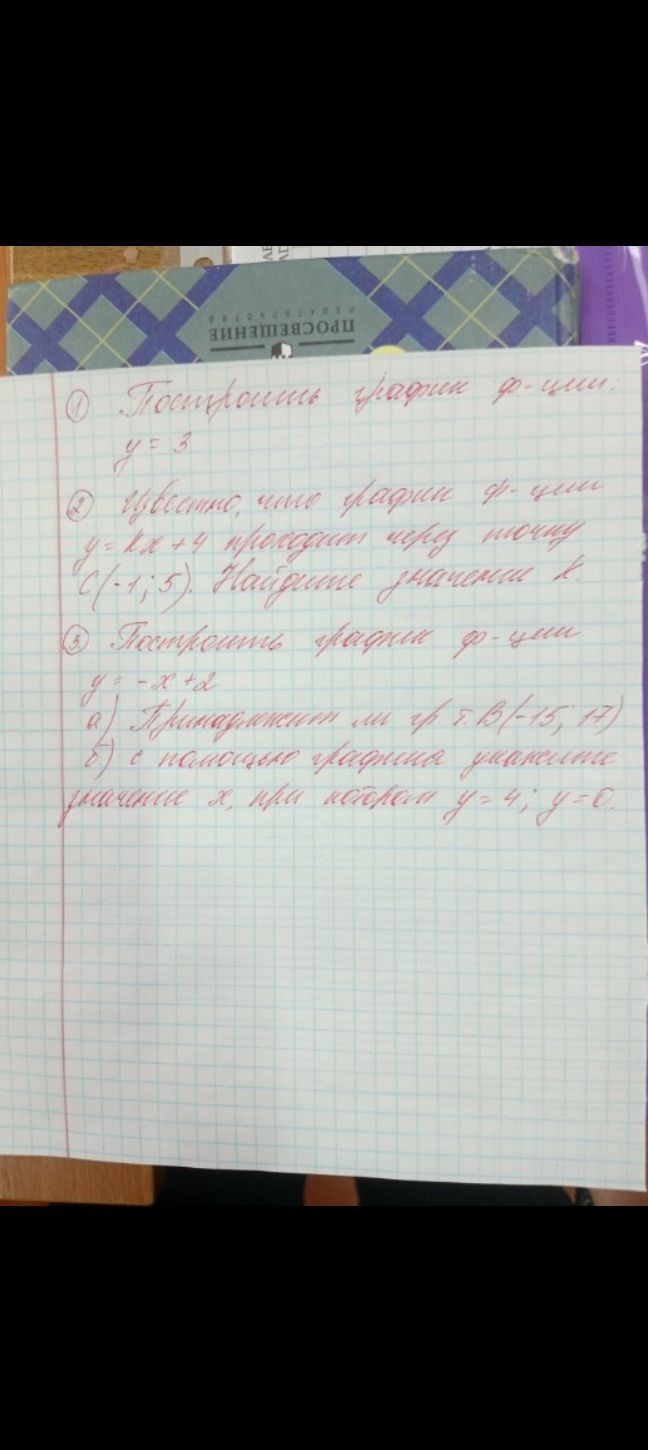 ПРОСВЕЩЕНИЕ
ИЗДАТЕЛЬСТВО
① Построить график ф-ции:
y = 3
② Известно, что график ф-ции
y = kx + 4 проходит через точку
C(-1; 5). Найдите значение k.
③ Построить график ф-ции
y = -x + 2
а) Принадлежит ли гр т. B(-15; 17)
б) с помощью графика укажите
значение x, при котором y = 4; y = 0.